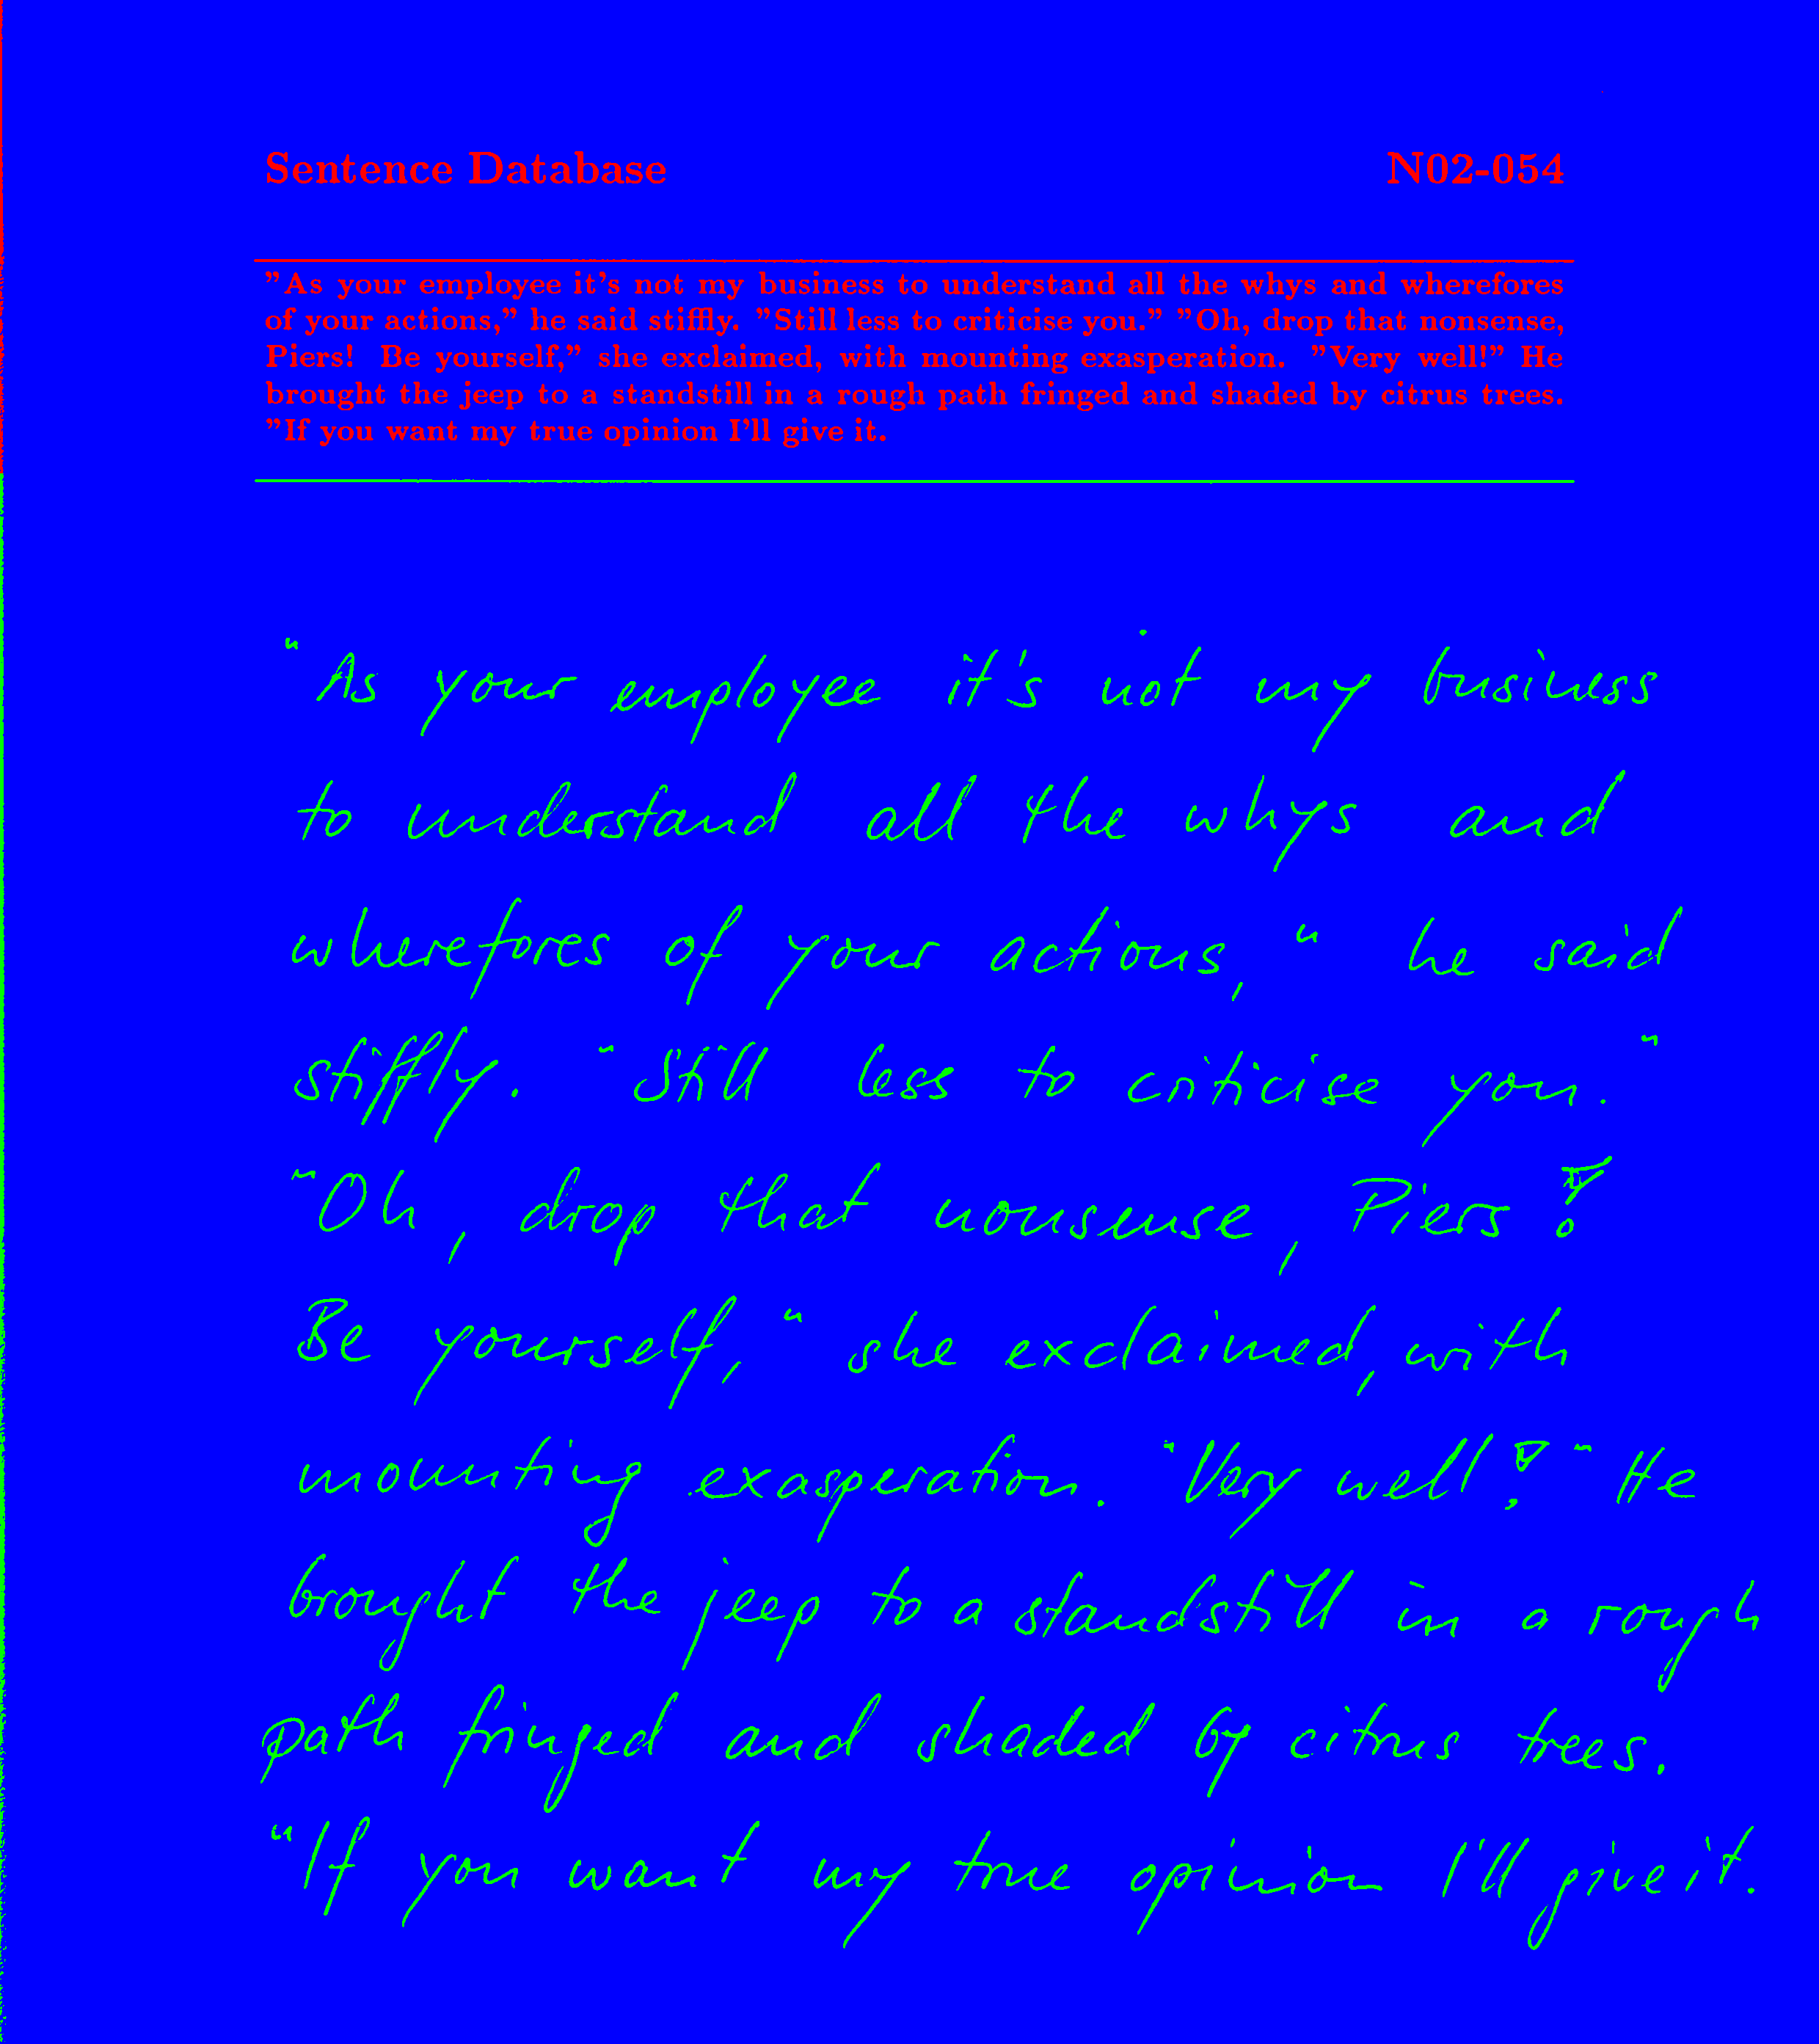 Sentence Database N02-054
"As your employee it's not my business to understand all the whys and wherefores
of your actions," he said stiffly. "Still less to criticise you." "Oh, drop that nonsense,
Piers! Be yourself," she exclaimed, with mounting exasperation. "Very well!" He
brought the jeep to a standstill in a rough path fringed and shaded by citrus trees.
"If you want my true opinion I'll give it.
"As your employee it's not my business
to understand all the whys and
wherefores of your actions," he said
stiffly. "Still less to criticise you."
"Oh, drop that nonsense, Piers!
Be yourself," she exclaimed, with
mounting exasperation. "Very well!" He
brought the jeep to a standstill in a rough
path fringed and shaded by citrus trees.
"If you want my true opinion I'll give it.